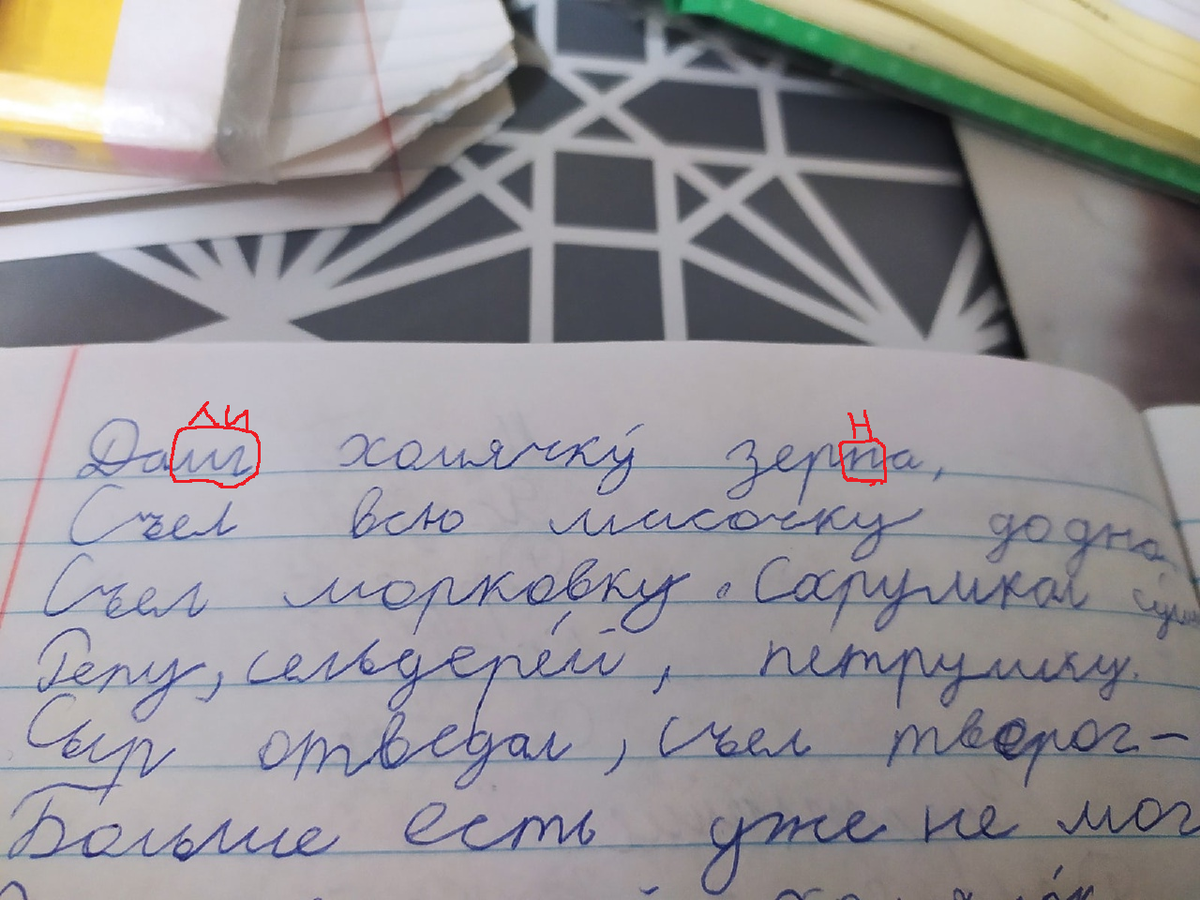 ли н
Дали хомячку́ зерна,
Съел всю мисочку до дна
Съел морковку. Схрумкал
Репу, сельдере́й, петрушку.
Сыр отведал, съел творог-
Больше есть уже не мог